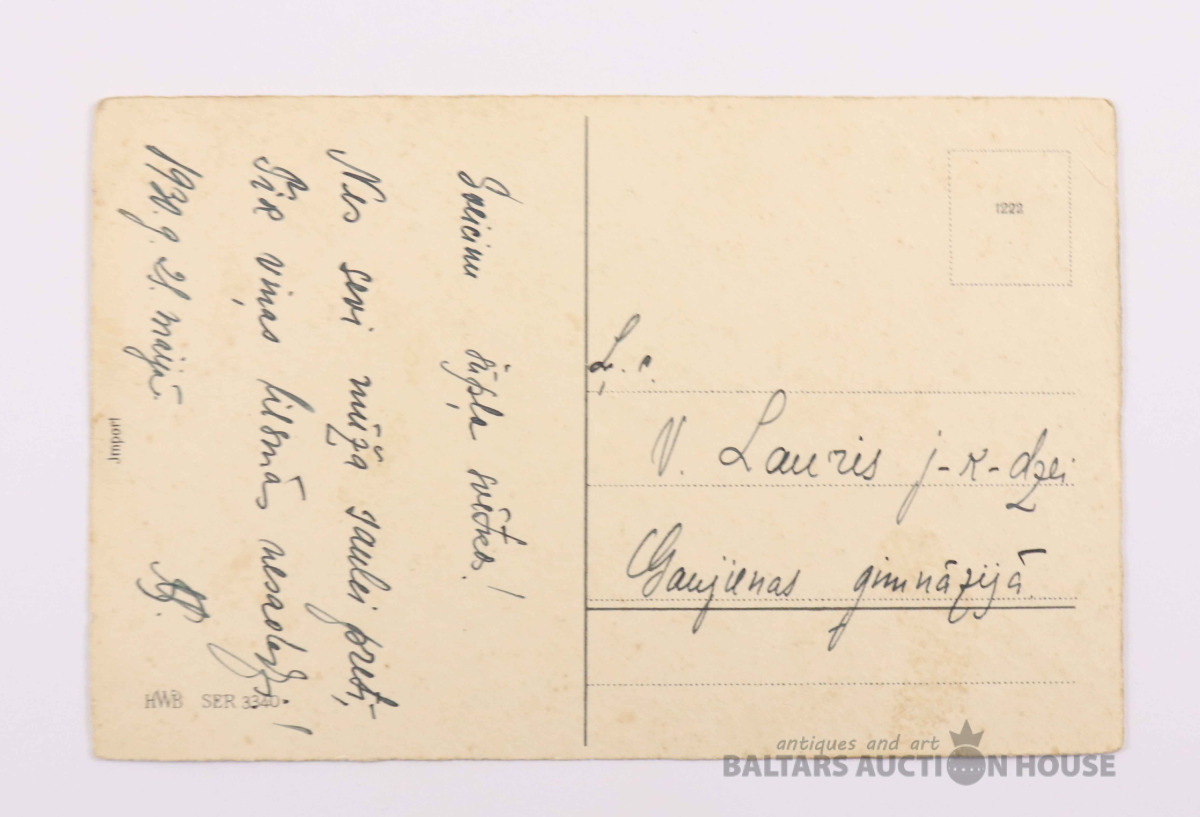 Sveicinu kāpļa svētkos!
Nes sevi mūža saulei pretī,
Tik viņas liesmās nesadegs!
1930. g. 28. maijā
Import
HWB SER 3340
1222
Ļ. c.
V. Lauris j-k-dzei
Gaujienas gimnāzijā
antiques and art
BALTARS AUCTION HOUSE